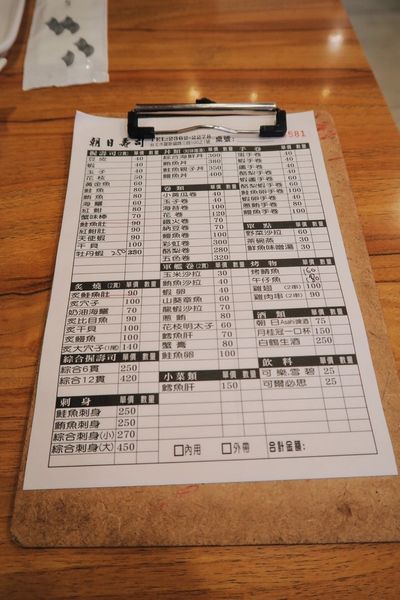 朝日壽司 TEL:2362-2278 桌號:
581
握壽司(2貫) 單價 數量
豆皮 40
蝦 40
玉子 40
花枝 50
黃金魚 60
鮭魚 80
鮪魚 80
海鱺 60
紅魽 80
蟹味棒 70
鮭魚肚 90
紅魽肚 90
天使蝦 90
干貝 100
牡丹蝦 250
炙燒 單價 數量
炙鮭魚肚 90
炙穴子 100
奶油海鱺 70
炙比目魚 90
炙干貝 100
炙鰻魚 100
炙大穴子(1尾) 140
綜合握壽司 單價 數量
綜合6貫 250
綜合12貫 420
刺身 單價 數量
鮭魚刺身 250
鮪魚刺身 250
綜合刺身(小) 270
綜合刺身(大) 450
丼類 單價 數量
綜合海鮮丼 300
鮭魚丼 380
鮭魚親子丼 350
鰻魚丼 400
卷類 單價 數量
小黃瓜卷 40
玉子卷 40
海苔卷 100
花卷 120
鐵火卷 70
納豆卷 70
鰻魚卷 100
彩虹卷 300
酪梨卷 280
五色卷 320
軍艦卷(2貫) 單價 數量
玉米沙拉 30
鮪魚沙拉 40
蝦卵 40
山葵章魚 60
龍蝦沙拉 70
蔥鮪 80
花枝明太子 60
鱈魚肝 70
蟹膏 80
鮭魚卵 100
小菜類 單價 數量
鱈魚肝 150
手卷 單價 數量
蝦手卷 40
蛋手卷 40
蝦卵手卷 40
蝦蘆手卷 60
酪梨手卷 60
酪梨蝦手卷 60
蔥鮪手卷 70
鮭魚手卷 90
蝦卵手卷 90
鰻魚手卷 100
單點 單價 數量
野菜沙拉 60
茶碗蒸 30
鮭魚味噌湯 30
烤物 單價 數量
烤鯖魚 60
午仔魚 80
雞翅(2串) 90
雞肉串(2串) 90
酒類 單價 數量
朝日Asahi啤酒 75
月桂冠一口杯 150
白鶴生酒 250
飲料 單價 數量
可樂.雪碧 25
可爾必思 25
□內用 □外帶 合計金額: